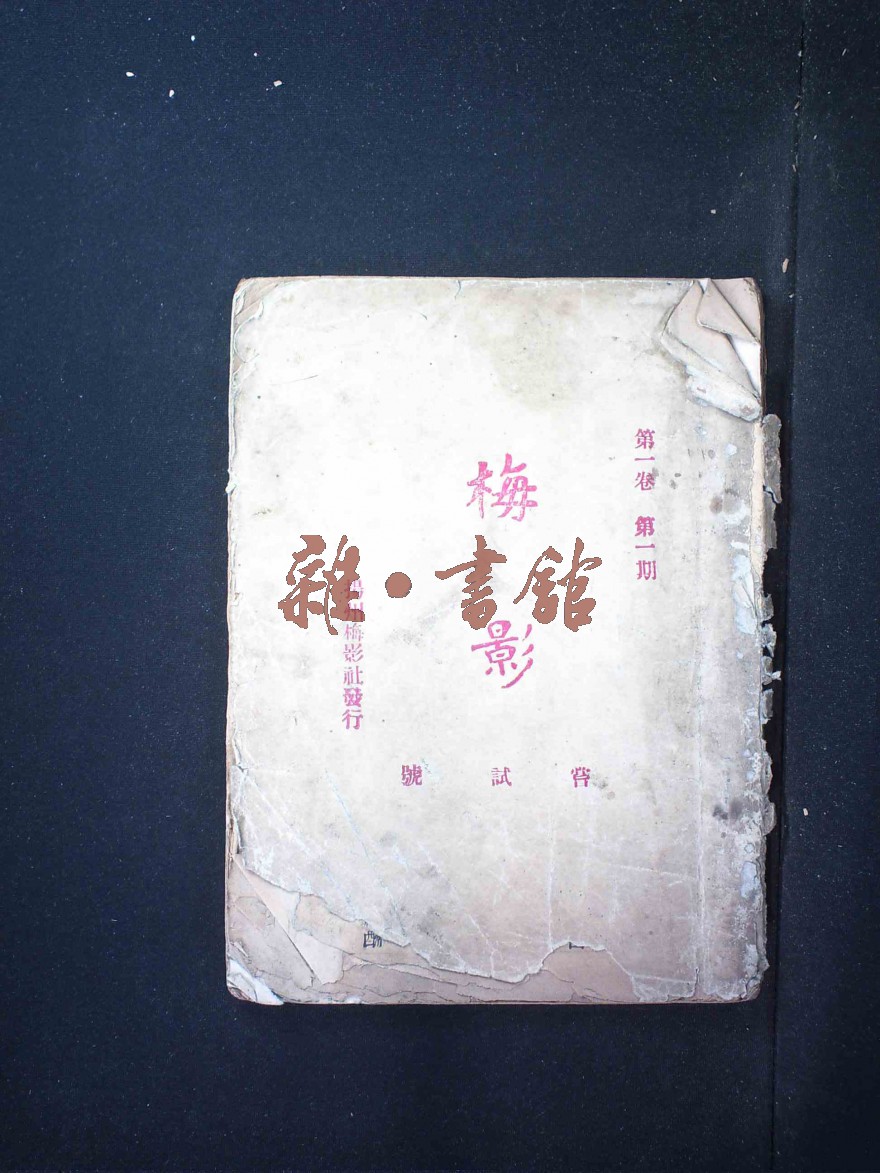 第一卷 第一期
梅影
州梅影社發行
嘗試號
雜•書館